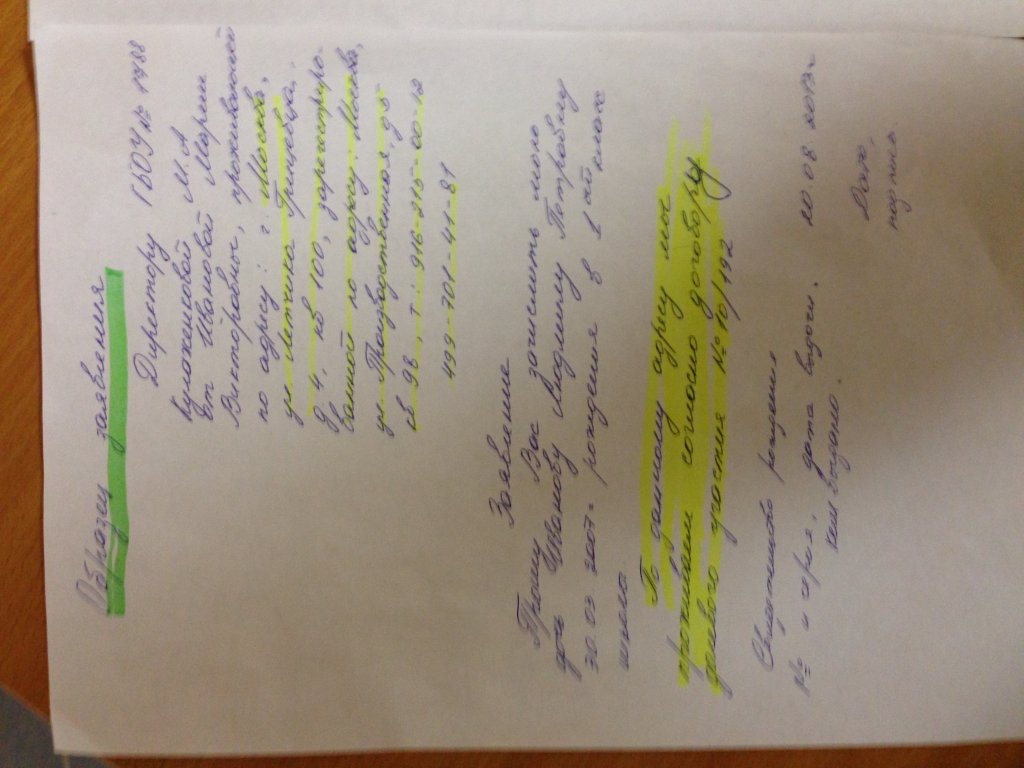 Образец заявления
Директору ГБОУ № 1488
Кулаженковой М.А
От Ивановой Марии
Викторовны, проживающей
по адресу: г. Москва,
ул Летчика Грицевца,
д 4, кв 100, зарегистриро-
ванной по адресу: Москва,
ул. Производственная, д 5
кв 98, т: 916-215-00-12
499-701-41-81
Заявление
Прошу Вас зачислить мою
дочь Иванову Людмилу Петровну
30.03.2007г рождения в 1 ый класс
школы
По данному адресу мы
проживаем согласно договору
долевого участия № 10/192
Свидетельство рождения
№ и серия, дата выдачи. 20.08.2013г
кем выдано.
Дата,
подпись.